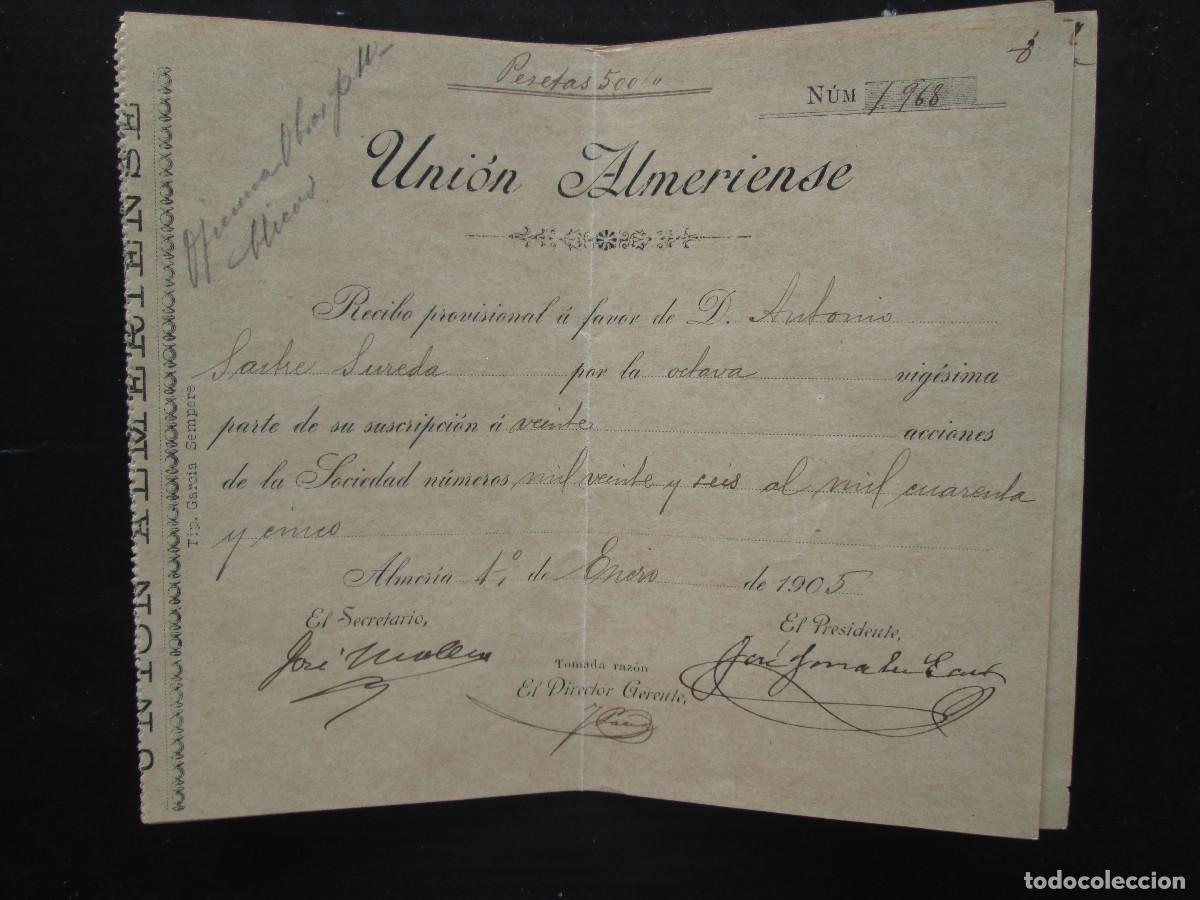 Pesetas 500 "
8
NÚM 1.968
Unión Almeriense
Oficina Obras
Recibo provisional á favor de D. Antonio
Sastre Sureda por la octava vigésima
parte de su suscripción á veinte acciones
de la Sociedad números mil veinte y seis al mil cuarenta
y cinco
Almería 1º de Enero de 1905
El Secretario,
El Presidente,
José
José
Tomada razón
El Director Gerente,
UNIÓN ALMERIENSE
Tip. García Sempere
todocoleccion